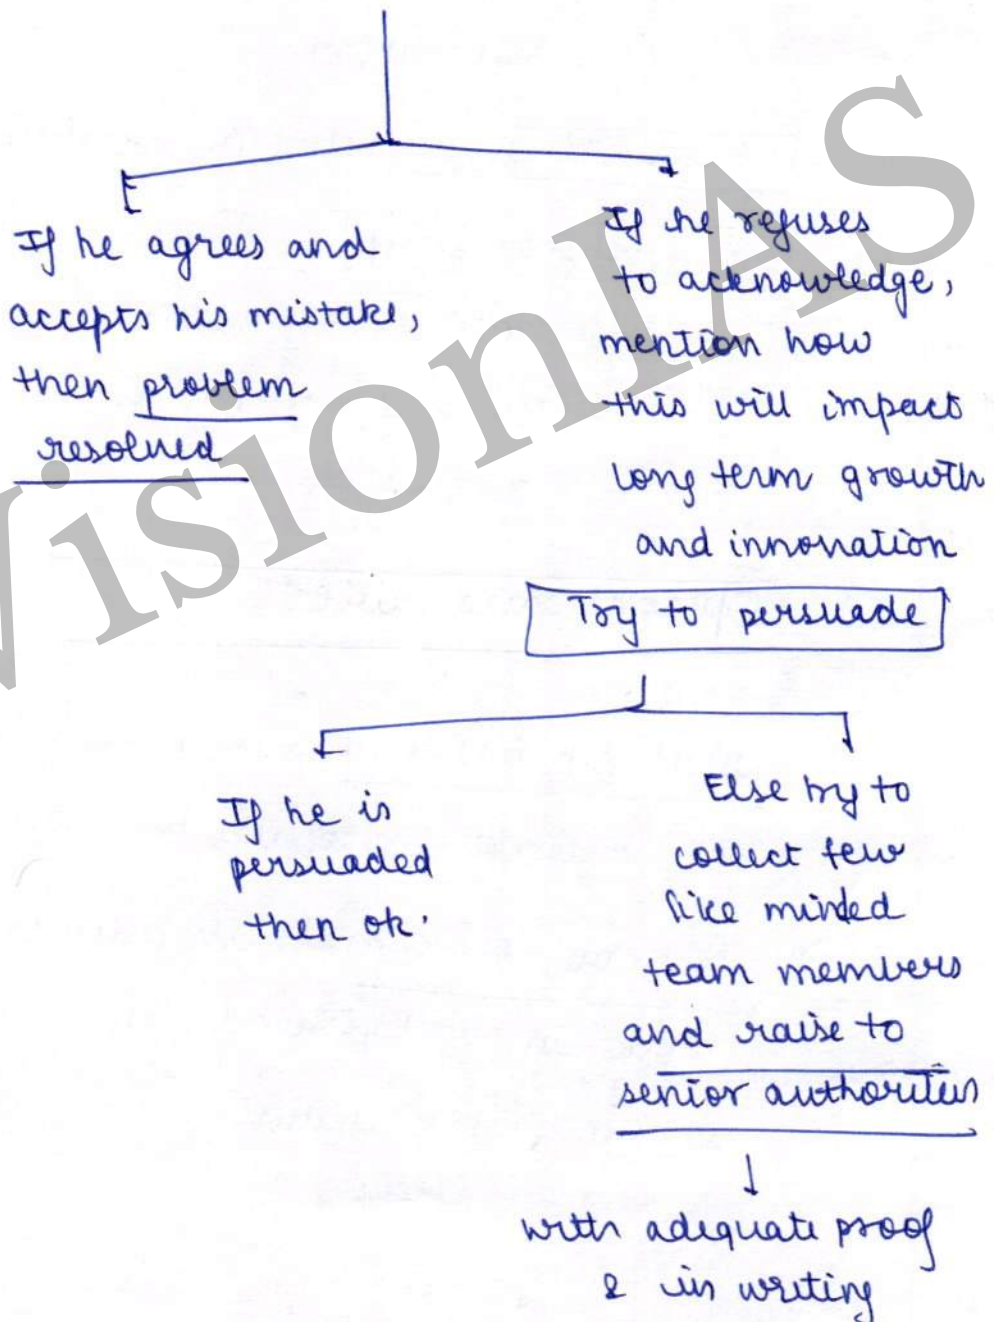 If he agrees and
accepts his mistake,
then problem
resolved
If he refuses
to acknowledge,
mention how
this will impact
long term growth
and innovation
Try to persuade
If he is
persuaded
then ok.
Else try to
collect few
like minded
team members
and raise to
senior authorities
with adequate proof
& in writing
VisionIAS